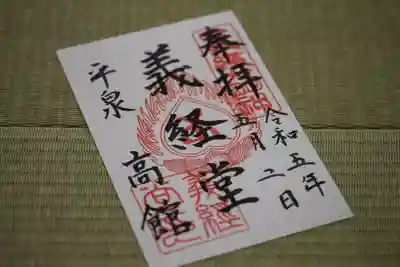 奉拝
令和五年
五月二日
義経堂
平泉
高館
義経